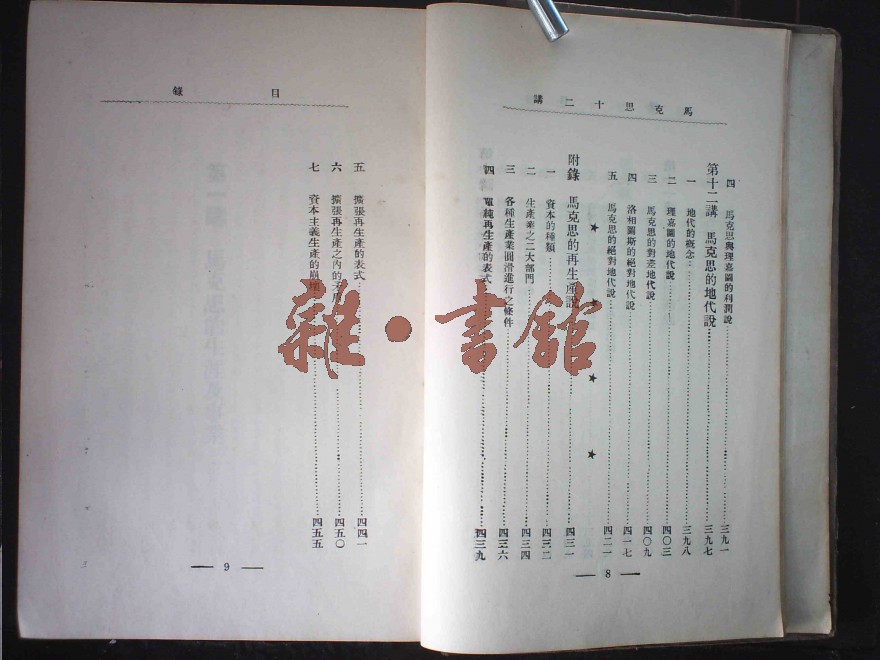 馬克思十二講
四 馬克思與理嘉圖的利潤說……三九一
第十二講 馬克思的地代說……三九七
一 地代的概念……三九八
二 理嘉圖的地代說……四〇三
三 馬克思的對差地代說……四〇九
四 洛相圖斯的絕對地代說……四一七
五 馬克思的絕對地代說……四二一
★ ★ ★ ★
附錄 馬克思的再生產說……四三一
一 資本的種類……四三二
二 生產業之二大部門……四三四
三 各種生產業圓滑進行之條件……四三六
四 單純再生產的表式……四三九
— 8 —
目錄
五 擴張再生產的表式……四四一
六 擴張再生產之內的……四五〇
七 資本主義生產的崩壞……四五五
— 9 —
雜·書館